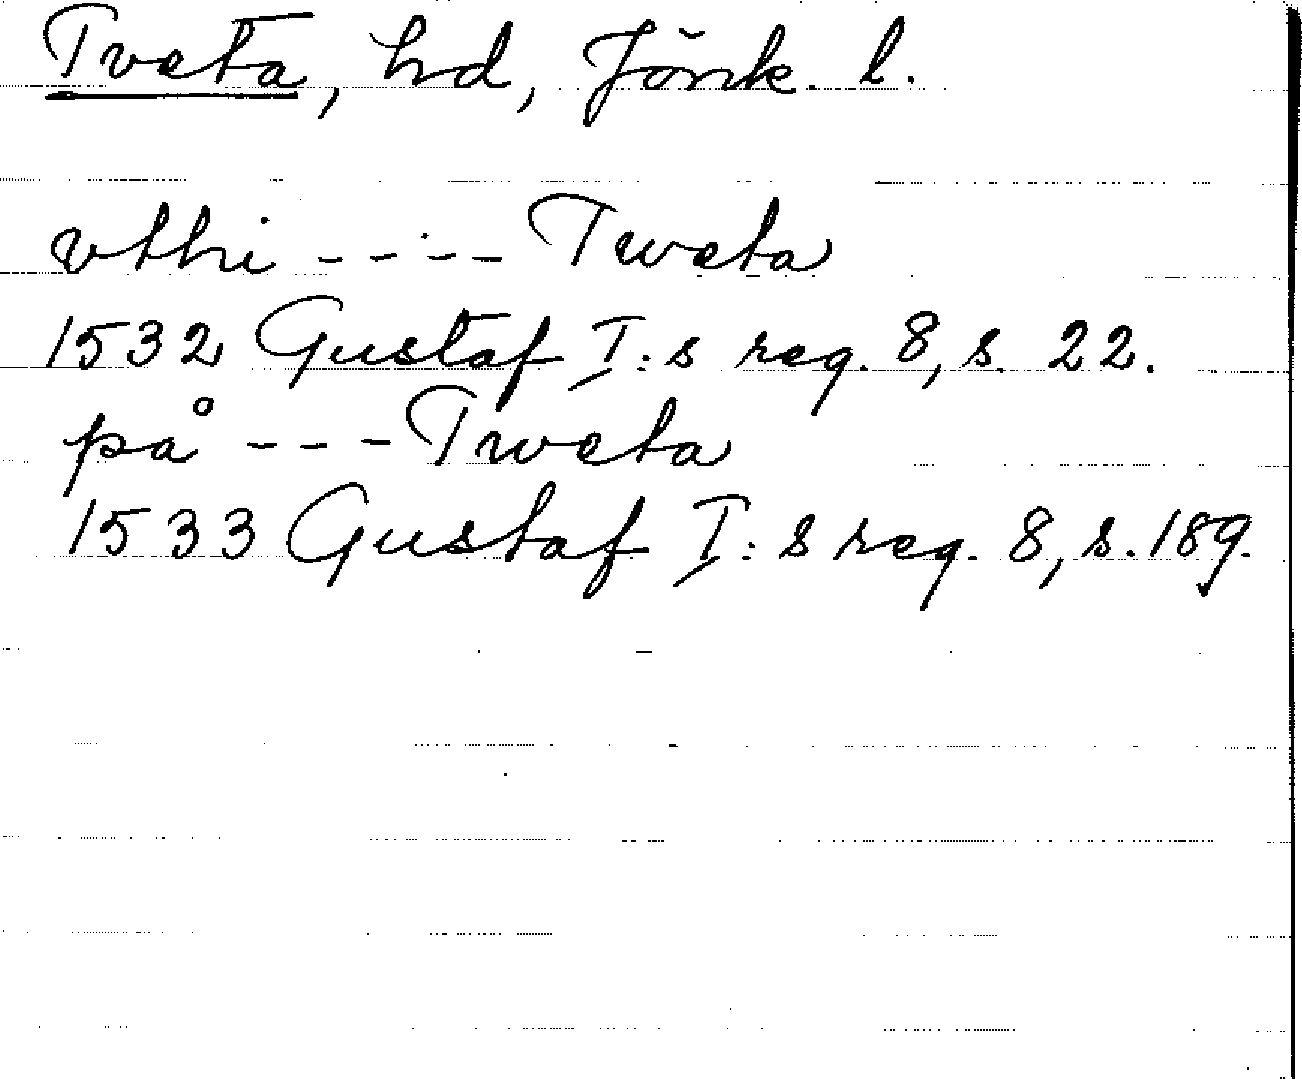 Tveta, hd, Jönk. l.
vthi ---- Tweta
1532 Gustaf I:s reg. 8, s. 22.
på --- Tweta
1533 Gustaf I:s reg. 8, s. 189.